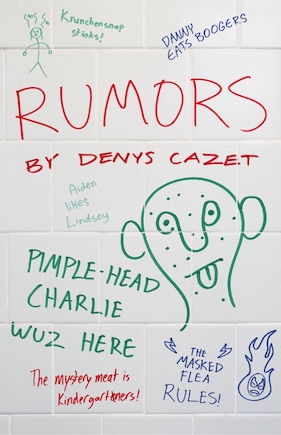 Krunchensnap
stinks!
DANNY
EATS BOOGERS
RUMORS
BY DENYS CAZET
Aiden
likes
Lindsey
PIMPLE-HEAD
CHARLIE
WUZ HERE
The mystery meat is
Kindergartners!
THE
MASKED
FLEA
RULES!